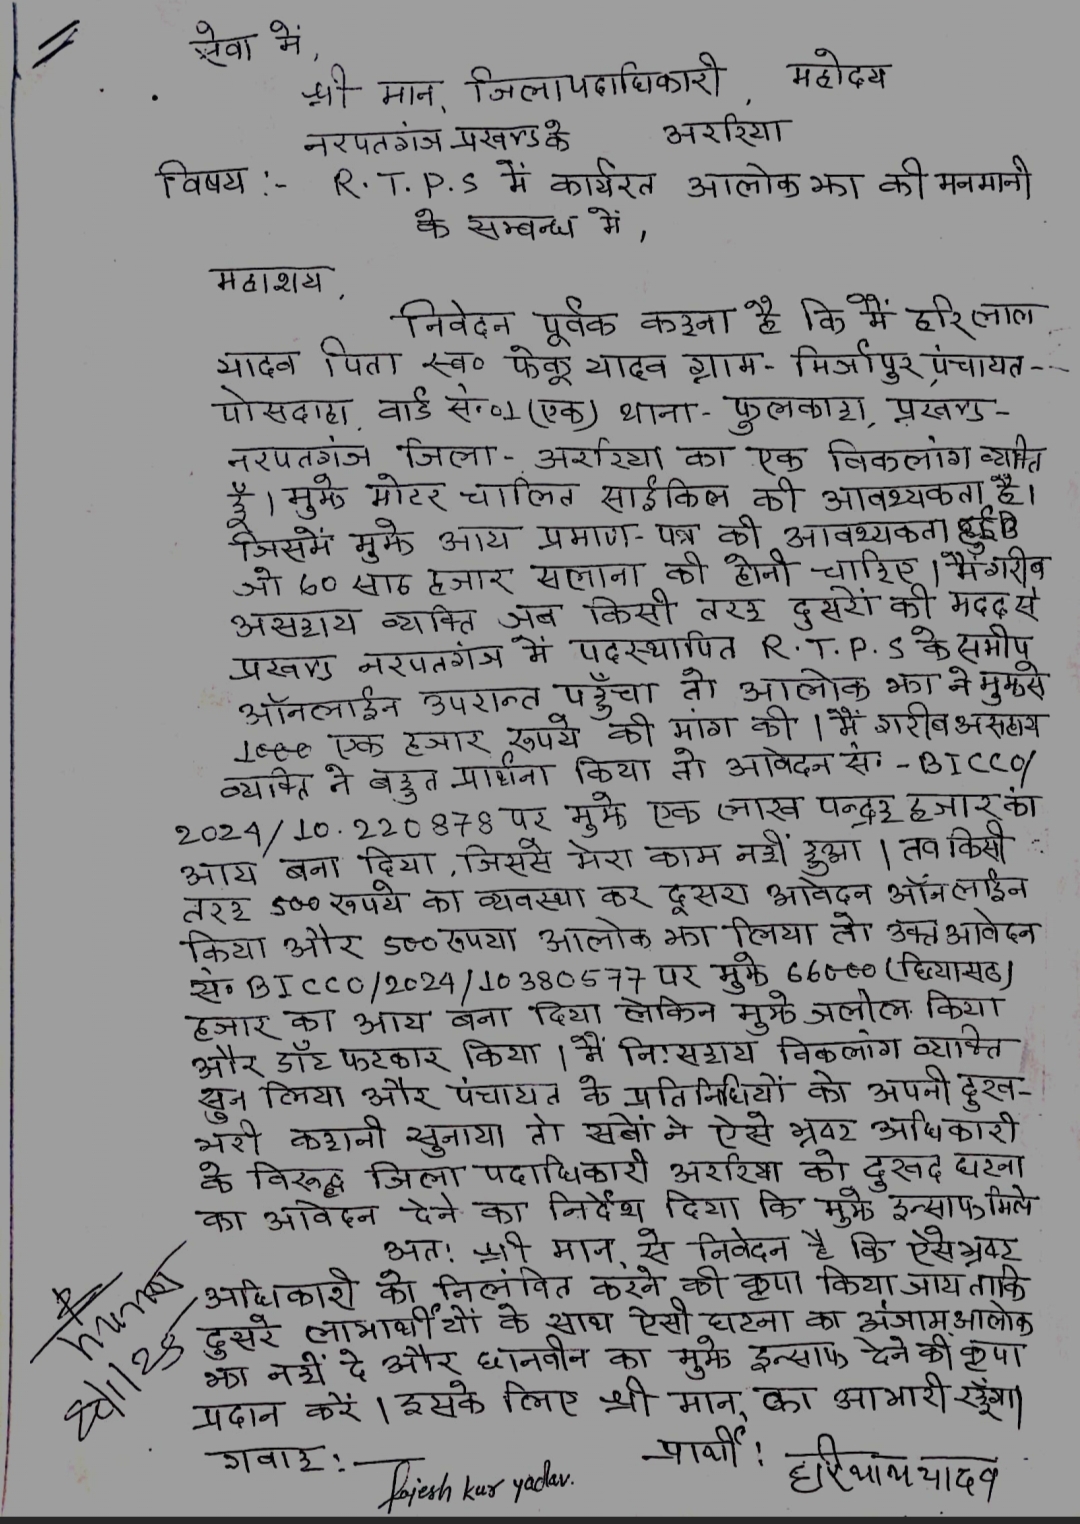 सेवा में,
श्री मान, जिलापदाधिकारी, महोदय
नरपतगंज प्रखण्ड के अररिया
विषय :- R.T.P.S में कार्यरत आलोक झा की मनमानी
के सम्बन्ध में,
महाशय,
निवेदन पूर्वक कहना है कि मैं हरिलाल
यादव पिता स्व० फेकू यादव ग्राम- मिर्जापुर, पंचायत-
पोसदाहा, वार्ड सं०01 (एक) थाना- फुलकाहा, प्रखण्ड-
नरपतगंज जिला- अररिया का एक विकलांग व्यक्ति
हूँ। मुझे मोटर चालित साईकिल की आवश्यकता है।
जिसमें मुझे आय प्रमाण-पत्र की आवश्यकता हुई
जो 60 साठ हजार सलाना की होनी चाहिए। मैं गरीब
असहाय व्यक्ति जब किसी तरह दुसरों की मदद से
प्रखण्ड नरपतगंज में पदस्थापित R.T.P.S के समीप
ऑनलाईन उपरान्त पहुँचा तो आलोक झा ने मुझसे
1000 एक हजार रूपये की मांग की। मैं गरीब असहाय
व्यक्ति ने बहुत प्रार्थना किया तो आवेदन सं॰ - BICCO/
2024/10.220878 पर मुझे एक लाख पन्द्रह हजार का
आय बना दिया, जिससे मेरा काम नहीं हुआ। तब किसी
तरह 500 रूपये का व्यवस्था कर दूसरा आवेदन ऑनलाईन
किया और 500 रूपया आलोक झा लिया तो उक्त आवेदन
सं० BICCO/2024/10380577 पर मुझे 66000 (छियासठ)
हजार का आय बना दिया लेकिन मुझे जलील किया
और डाँट फटकार किया। मैं निःसहाय विकलांग व्यक्ति
सुन लिया और पंचायत के प्रतिनिधियों को अपनी दुख-
भरी कहानी सुनाया तो सबों ने ऐसे भ्रष्ट अधिकारी
के विरूद्ध जिला पदाधिकारी अररिया को दुखद घटना
का आवेदन देने का निर्देश दिया कि मुझे इन्साफ मिले
अतः श्री मान, से निवेदन है कि ऐसे भ्रष्ट
अधिकारी को निलंबित करने की कृपा किया जाय ताकि
दुसरे लाभार्थीयों के साथ ऐसी घटना का अंजाम आलोक
झा नहीं दे और छानवीन का मुझे इन्साफ देने की कृपा
प्रदान करें। इसके लिए श्री मान, का आभारी रहूँगा।
गवाह :- प्रार्थी :
Rajesh kur yadav. हरिलाल यादव